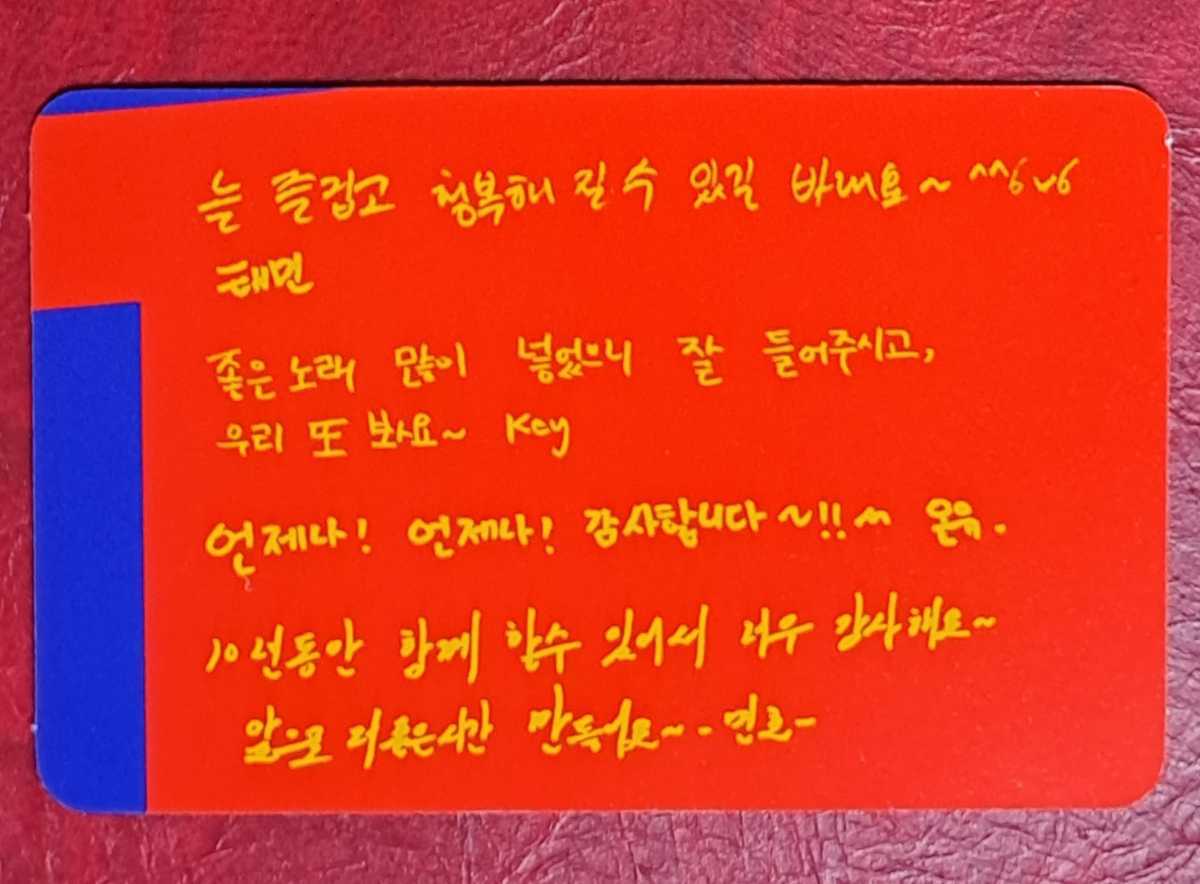 늘 즐겁고 행복해 질 수 있길 바래요~ ^^6v6
태민
좋은 노래 많이 넣었으니 잘 들어주시고,
우리 또 봐요~ Key
언제나! 언제나! 감사합니다~!!^^ 온유.
10년동안 함께 할수 있어서 너무 감사해요~
앞으로 더 좋은시간 만들어요~. 민호-